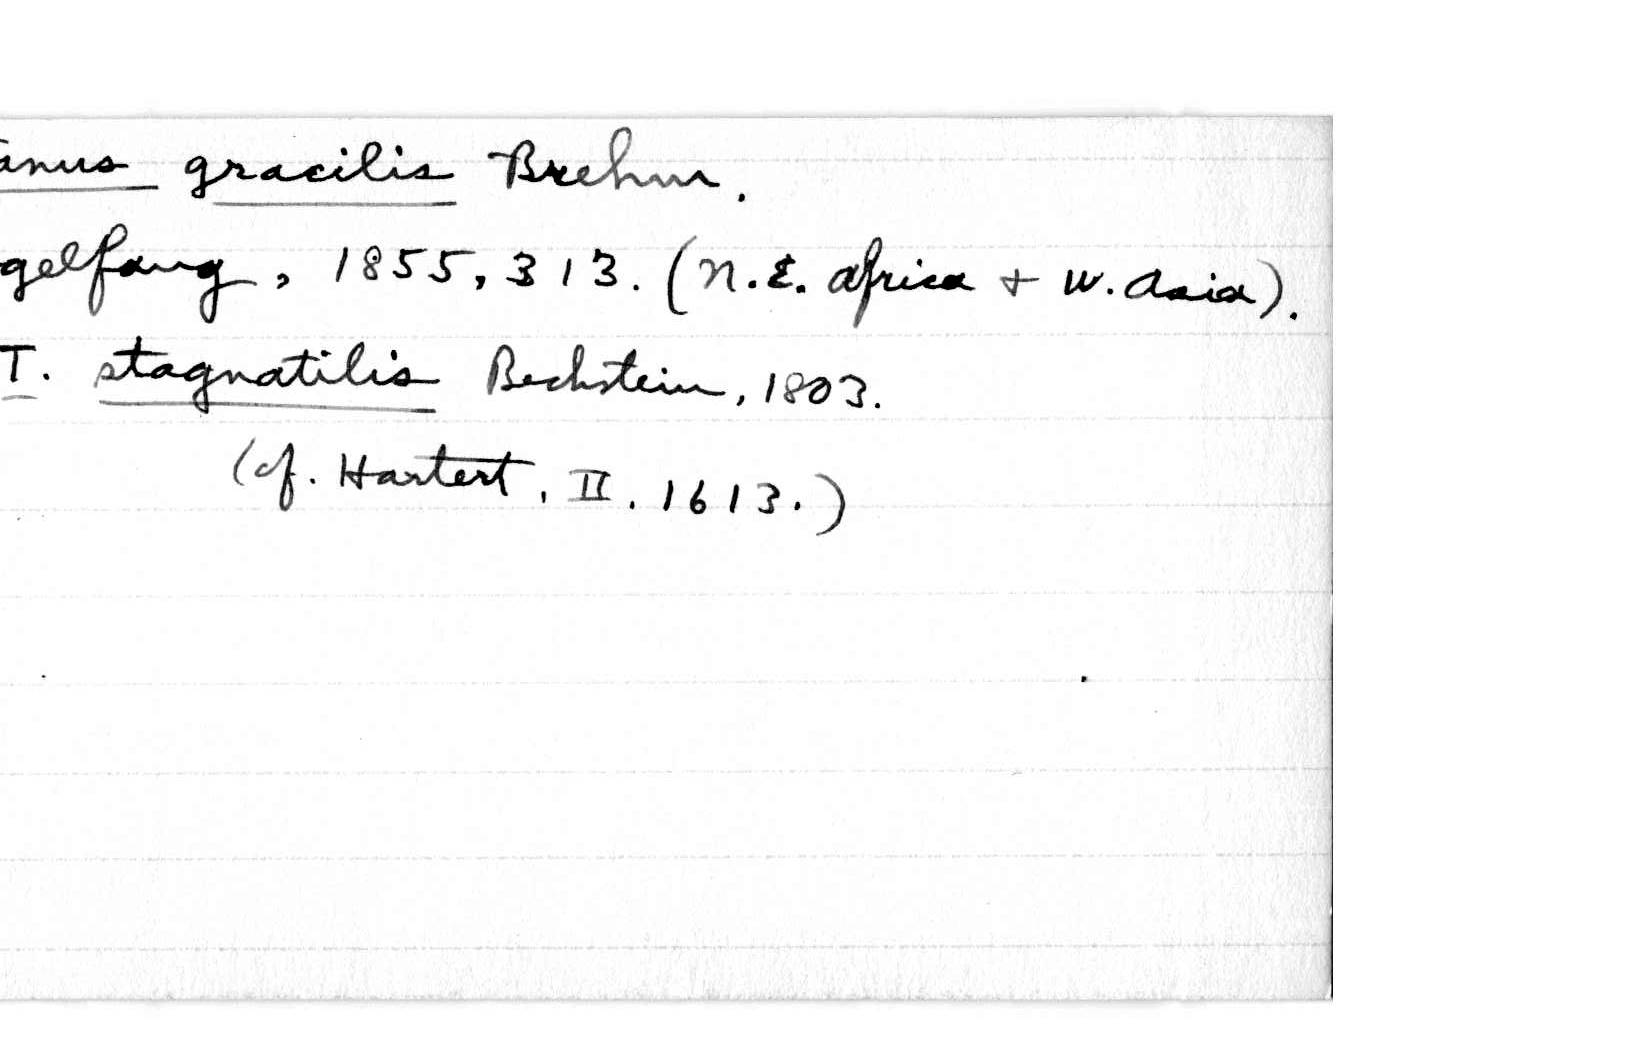 anus gracilis Brehm.
gelfang, 1855, 313. (N.E. Africa + W. Asia).
T. stagnatilis Bechstein, 1803.
(cf. Hartert, II. 1613.)